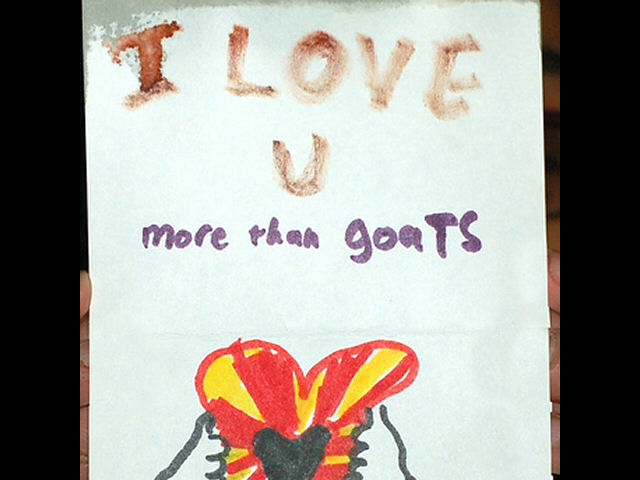 I LOVE
U
more than goaTS